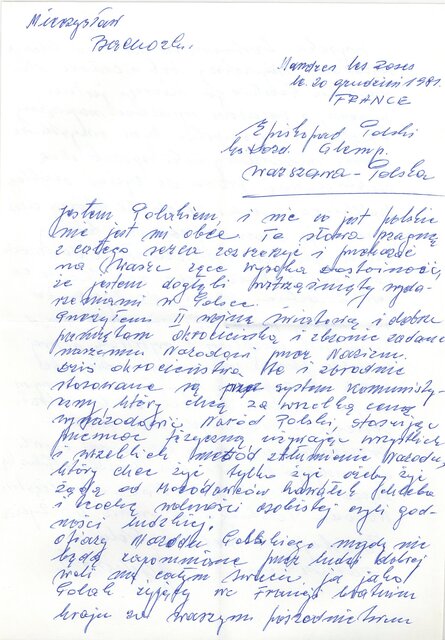 Mieczysław
Bachorski.
Mandres les Roses
le. 20 grudzień 1981.
FRANCE
Episkopad Polski
Glemp.
Warszawa – Polska
Jestem Polakiem, i nic co jest polskie
nie jest mi obce. Te słowa pragnę
z całego serca zaszczycić i przekazać
na Wasze ręce wysoka dostojność,
że jestem dogłębi wstrząśnięty wyda-
rzeniami w Polsce.
Przeżyłem II wojnę światową, i dobrze
pamiętam okrucieństwa i zbronie zadane
naszemu Narodowi przez Nazizm.
Dziś okrucieństwa te i zbrodnie
stosowane są przez system komunisty-
czny który chcą za wszelką cenę
wynarodowić Naród Polski, stosując
przemoc fizyczną używając wszystkich
i wszelkich metod ztłumienia Narodu,
który chce żyć tylko żyć – żeby żyć
żąda od chleba
i trochę wolności osobistej czyli god-
ności ludzkiej.
Ofiary Narodu Polskiego nigdy nie
będą zapomniane przez ludzi dobrej
woli na całym świecie, ja jako
Polak żyjący we Francji bratniem
kraju za waszym pośrednictwem